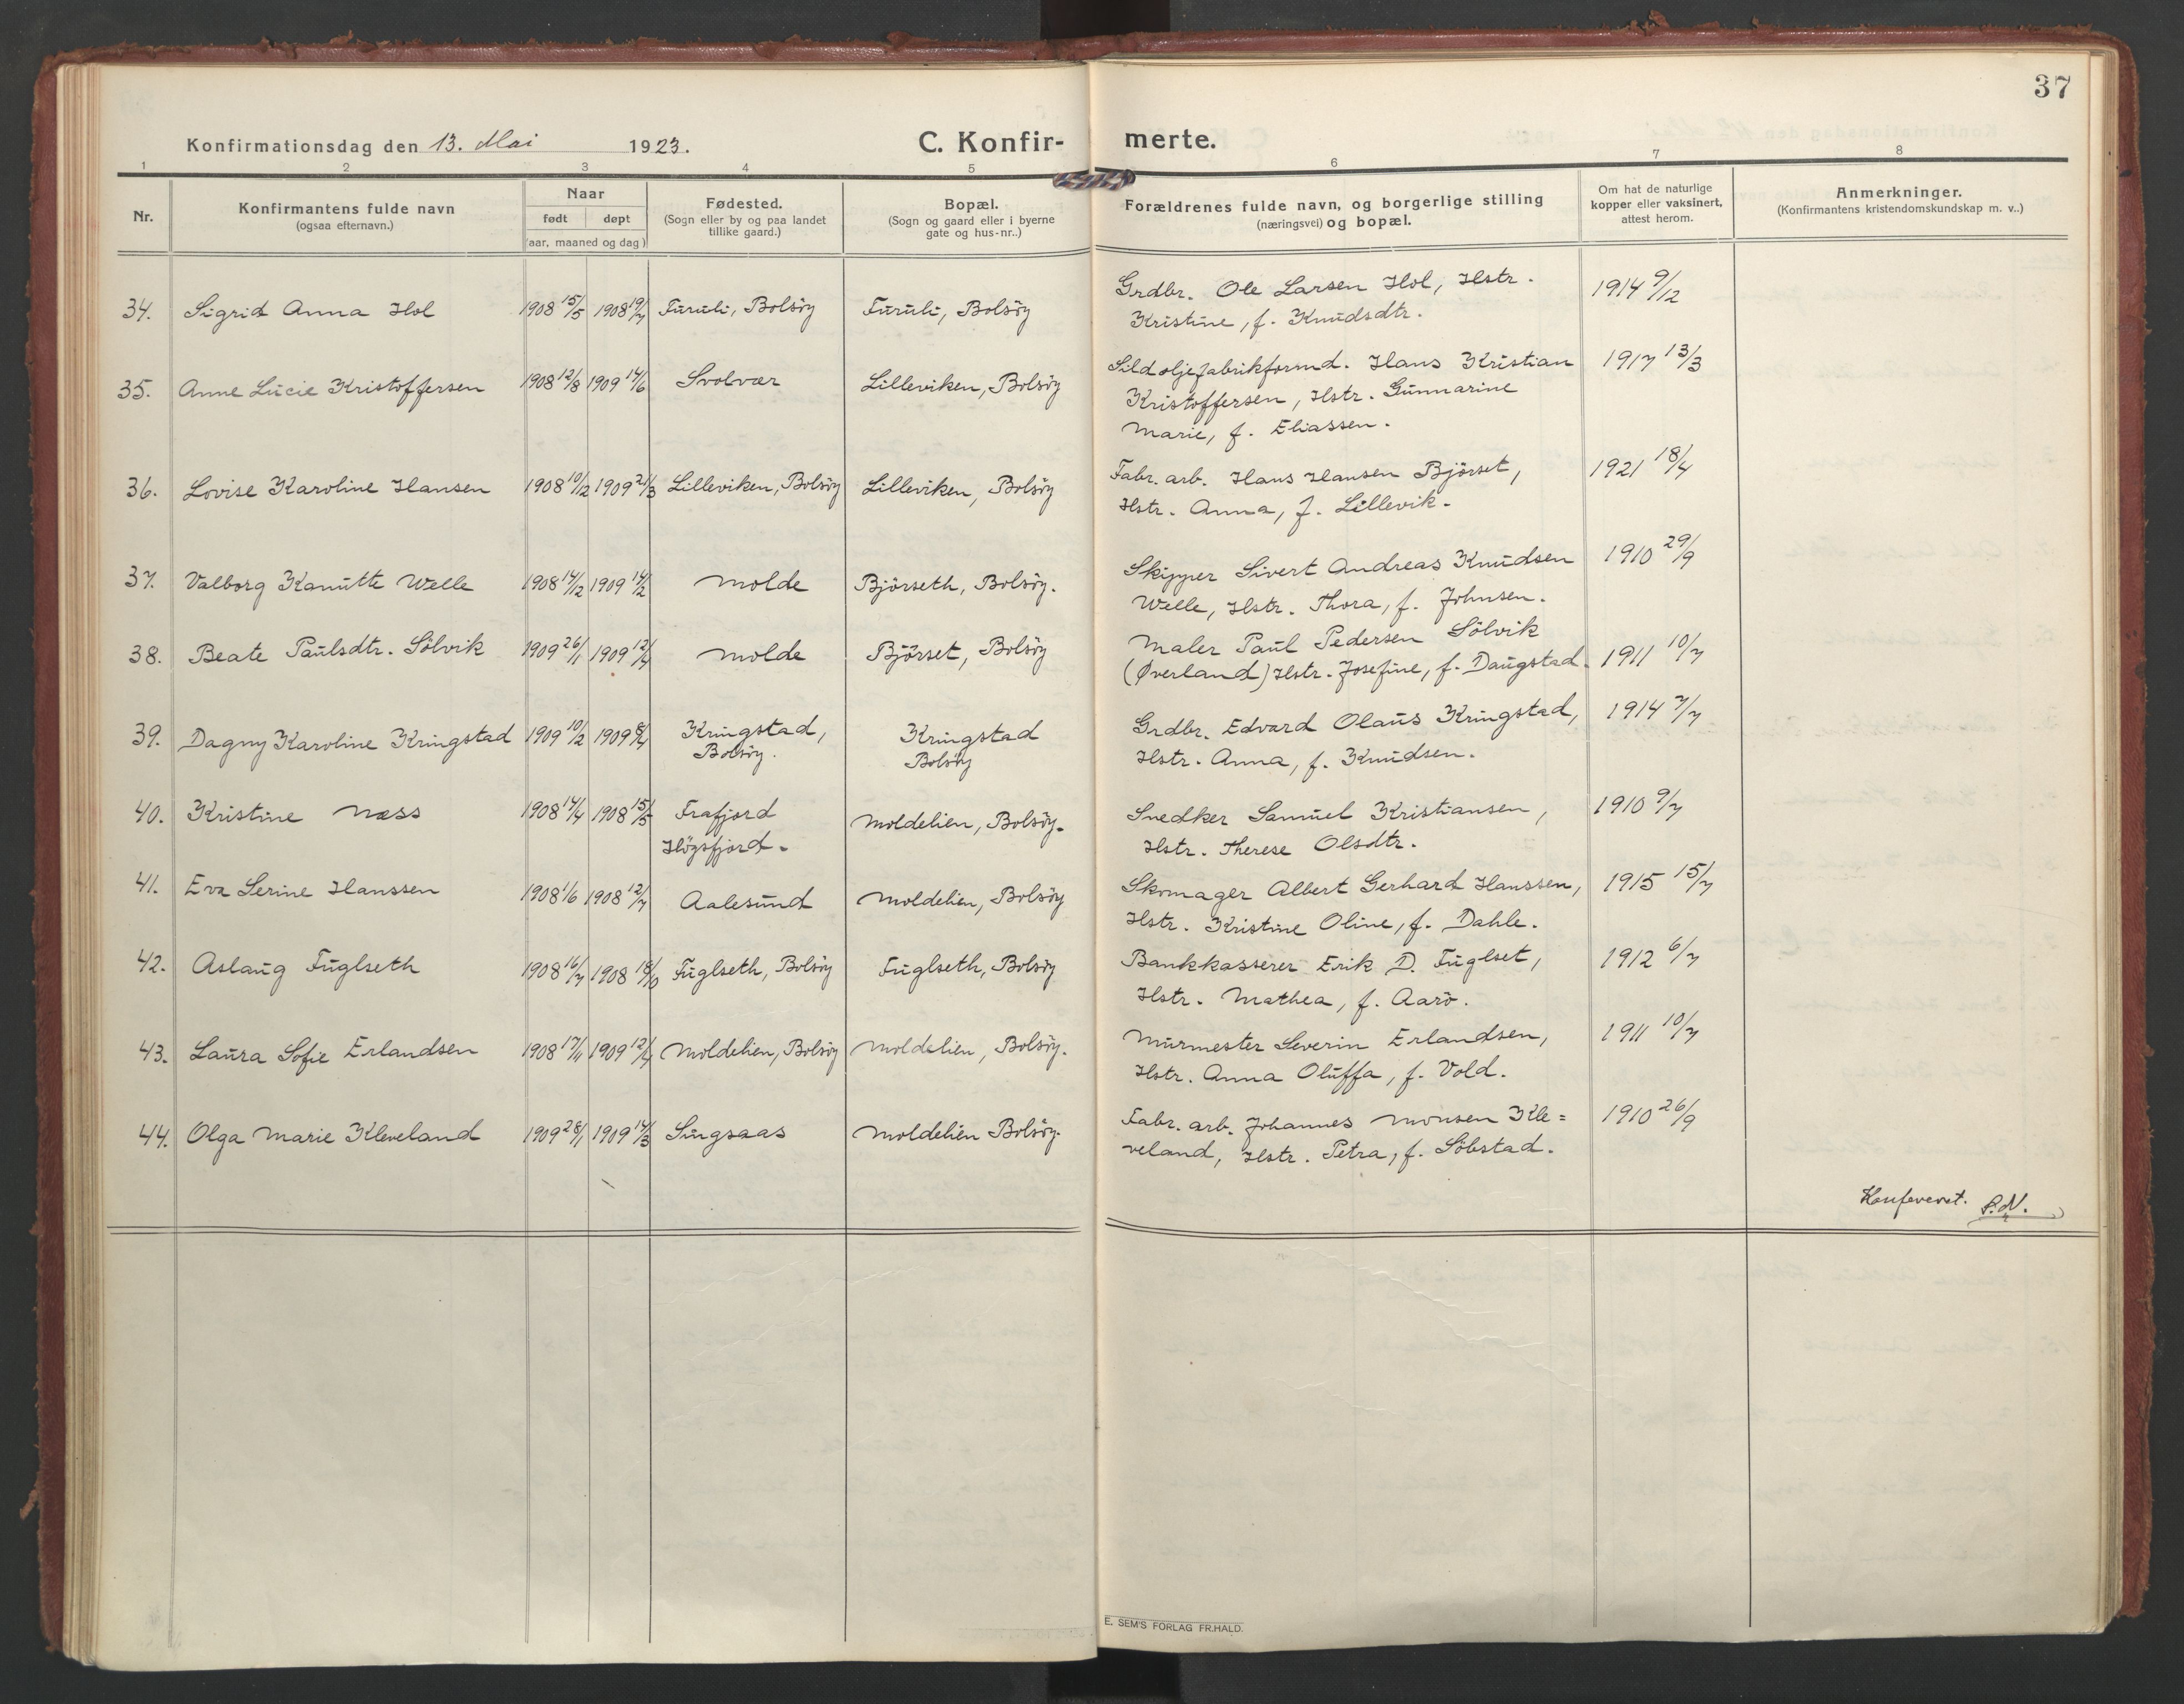 37
Konfirmationsdag den 13. Mai 1923. C. Konfir- merte.
1 2 3 4 5 6 7 8
Nr. Konfirmantens fulde navn (ogsaa efternavn.) Naar født døpt (aar, maaned og dag) Fødested. (Sogn eller by og paa landet tillike gaard.) Bopæl. (Sogn og gaard eller i byerne gate og hus-nr..) Forældrenes fulde navn, og borgerlige stilling (næringsvei) og bopæl. Om hat de naturlige kopper eller vaksinert, attest herom. Anmerkninger. (Konfirmantens kristendomskundskap m. v..)
34. Sigrid Anna Hol 1908 15/5 1908 19/7 Furuli, Bolsöy Furuli, Bolsöy Grdbr. Ole Larsen Hol, Hstr. 1914 9/12
Kristine, f. Knudsdtr.
35. Anne Lucie Kristoffersen 1908 12/8 1909 14/6 Svolvær Lilleviken, Bolsöy Sildoljefabrikformd. Hans Kristian 1917 13/3
Kristoffersen, Hstr. Gunnarine
Marie, f. Eliassen.
36. Lovise Karoline Hansen 1908 10/12 1909 21/3 Lilleviken, Bolsöy Lilleviken, Bolsöy Fabr. arb. Hans Hansen Björset, 1921 18/4
Hstr. Anna, f. Lillevik.
37. Valborg Kanutte Welle 1908 14/12 1909 14/2 Molde Björseth, Bolsöy. Skipper Sivert Andreas Knudsen 1910 29/9
Welle, Hstr. Thora, f. Johnsen.
38. Beate Paulsdtr. Sölvik 1909 26/1 1909 12/4 Molde Björset, Bolsöy Maler Paul Pedersen Sölvik
(Øverland) Hstr. Josefine, f. Daugstad. 1911 10/7
39. Dagny Karoline Kringstad 1909 10/2 1909 8/4 Kringstad, Bolsöy. Kringstad Bolsöy Grdbr. Edvard Olaus Kringstad, 1914 7/7
Hstr. Anna, f. Knudsen.
40. Kristine Næss 1908 14/4 1908 15/5 Frafjord Högsfjord. Moldelien, Bolsöy. Snedker Samuel Kristiansen, 1910 9/7
Hstr. Therese Olsdtr.
41. Eva Serine Hanssen 1908 1/6 1908 12/7 Aalesund Moldelien, Bolsöy Skomager Albert Gerhard Hanssen, 1915 15/7
Hstr. Kristine Oline, f. Dahle.
42. Aslaug Fuglseth 1908 16/7 1908 18/10 Fuglseth, Bolsöy Fuglseth, Bolsöy Bankkasserer Erik D. Fuglset, 1912 6/7
Hstr. Mathea, f. Aarö.
43. Laura Sofie Erlandsen 1908 17/11 1909 12/4 Moldelien, Bolsöy Moldelien, Bolsöy. Murmester Severin Erlandsen, 1911 10/7
Hstr. Anna Oluffa, f. Vold.
44. Olga Marie Kleveland 1909 28/1 1909 14/3 Singsaas Moldelien Bolsöy. Fabr. arb. Johannes Monsen Kle= 1910 26/9
veland, Hstr. Petra, f. Söbstad.
Konfereret.
E. SEM'S FORLAG FR.HALD.